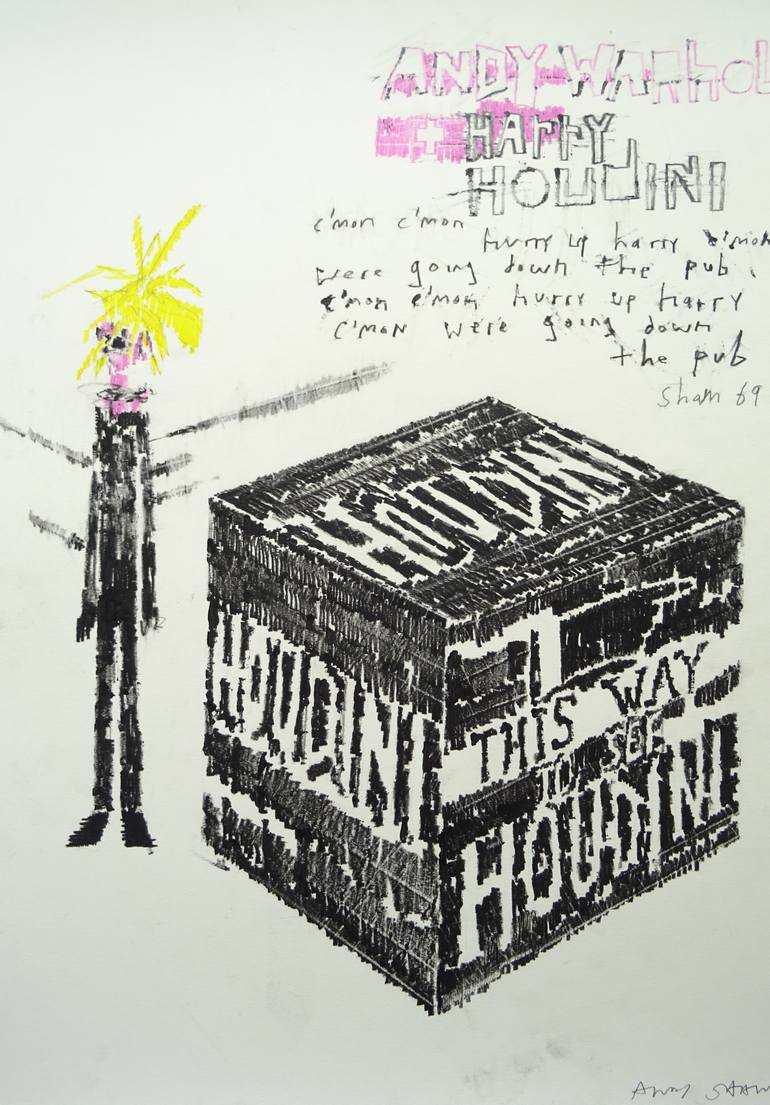 ANDY WARHOL
+ HAPPY
HOUDINI
c'mon c'mon
hurry up harry c'mon
were going down the pub.
c'mon c'mon hurry up harry
c'mon were going down
the pub
Sham 69
HOUDINI
HOUDINI
THIS WAY
SEE
HOUDINI
ANDY SHAW